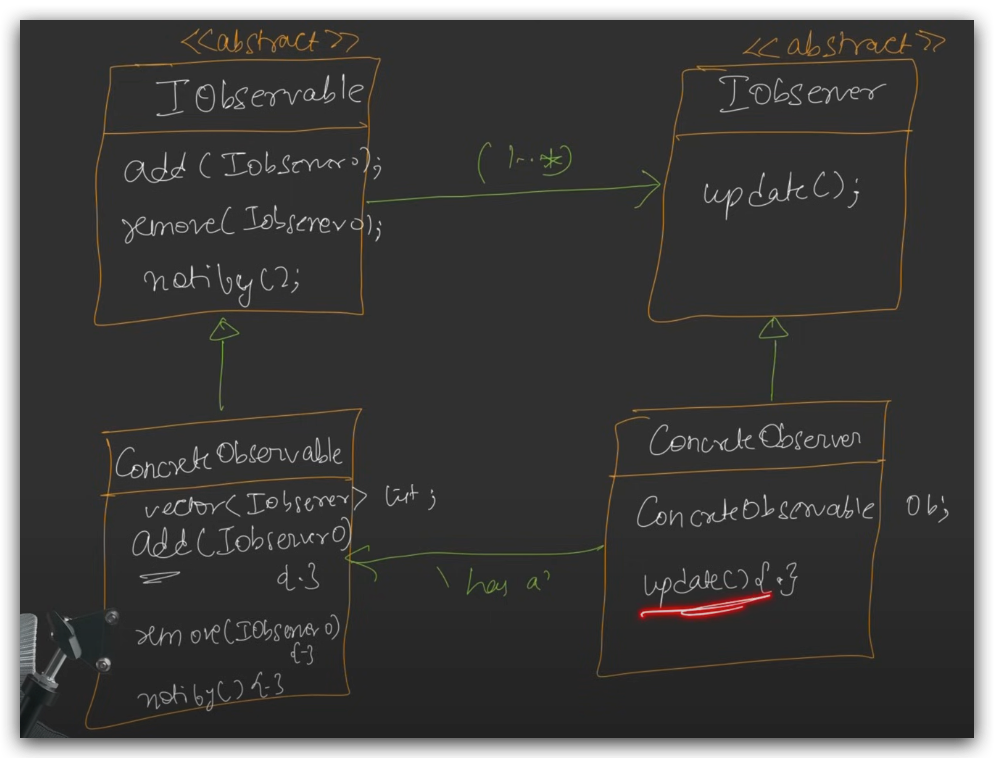 <<abstract>>
IObservable
add(IObserver o);
remove(IObserver o);
notify();
(1..*)
<<abstract>>
IObserver
update();
ConcreteObservable
vector<IObserver> list;
add(IObserver o)
{.}
remove(IObserver o)
{-}
notify(){-}
'has a'
ConcreteObserver
ConcreteObservable Ob;
update(){.}